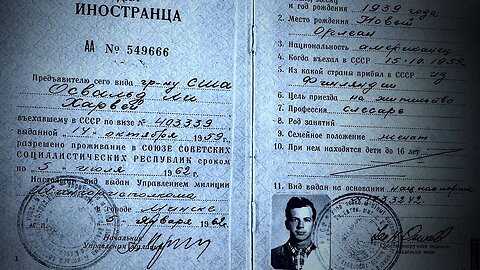 ИНОСТРАНЦА
АА № 549666
Предъявителю сего вида гр-ну США
Освальд Ли
Харвей
въехавшему в СССР по визе № 403339
выданной 14 октября 1959 г.
разрешено проживание в СОЮЗЕ СОВЕТСКИХ
СОЦИАЛИСТИЧЕСКИХ РЕСПУБЛИК сроком
по 5 июля 1962 г.
Настоящий вид выдан Управлением милиции
в городе Минске
5 января 1962 г.
Начальник
Управления милиции
1
и год рождения 1939 года
2. Место рождения Новый
Орлеан
3. Национальность американец
4. Когда въехал в СССР 15-10.1959.
5. Из какой страны прибыл в СССР из
Финляндии
6. Цель приезда на жительство
7. Профессия слесарь
8. Род занятий
9. Семейное положение женат
10. При нем находятся дети до 16 лет
11. Вид выдан на основании нац паспорта